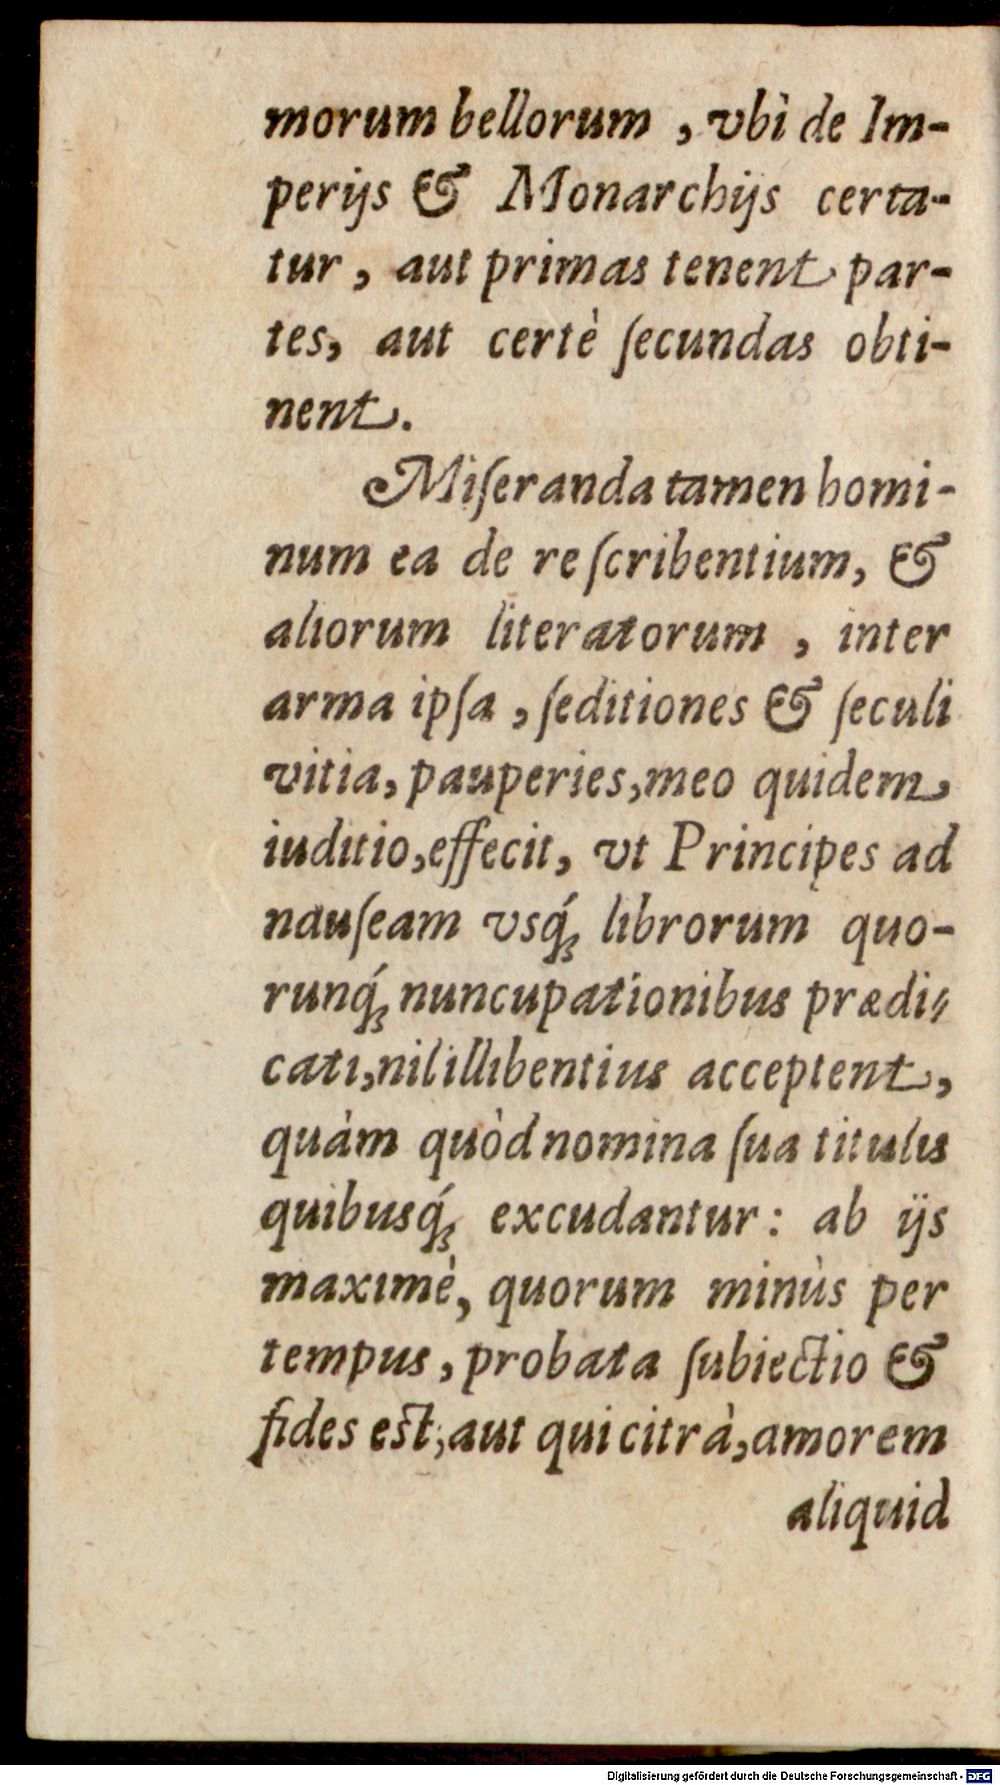 morum bellorum , vbì de Im-
perijs & Monarchijs certa-
tur , aut primas tenent par-
tes, aut certè ſecundas obti-
nent.
Miſeranda tamen homi-
num ea de re ſcribentium, &
aliorum literatorum , inter
arma ipſa , ſeditiones & ſeculi
vitia, pauperies, meo quidem
iuditio, effecit, vt Principes ad
nauſeam vsq́; librorum quo-
runq́; nuncupationibus prædi-
cati, nil illibentius acceptent,
quàm quòd nomina ſua titulis
quibusq́; excudantur: ab ijs
maximè, quorum minùs per
tempus, probata ſubiectio &
fides est; aut qui citrà, amorem
aliquid
Digitalisierung gefördert durch die Deutsche Forschungsgemeinschaft - DFG